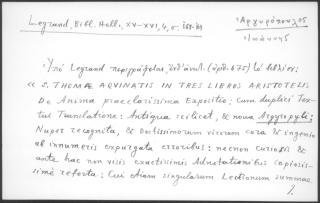 Legrand, Bibl. Hell., XV-XVI, 4, σ.
Ἀργυρόπουλος
Ἰωάννης
Ὑπὸ Legrand περιγράφεται, (ἀριθ. 675) τὸ βιβλίον:
« S. THOMAE AQVINATIS IN TRES LIBROS ARISTOTELIS
De Anima praeclarissima Expositio; Cum duplici Tex-
tus Translatione: Antiqua scilicet, & noua Argyropyli:
Nuper recognita, & doctissimorum virorum cura & ingenio
ab innumeris expurgata erroribus: necnon curiosis &
ante hac non visis exactissimis Adnotationibus copiosis-
simè referta; Cui etiam singularum Lectionum summae